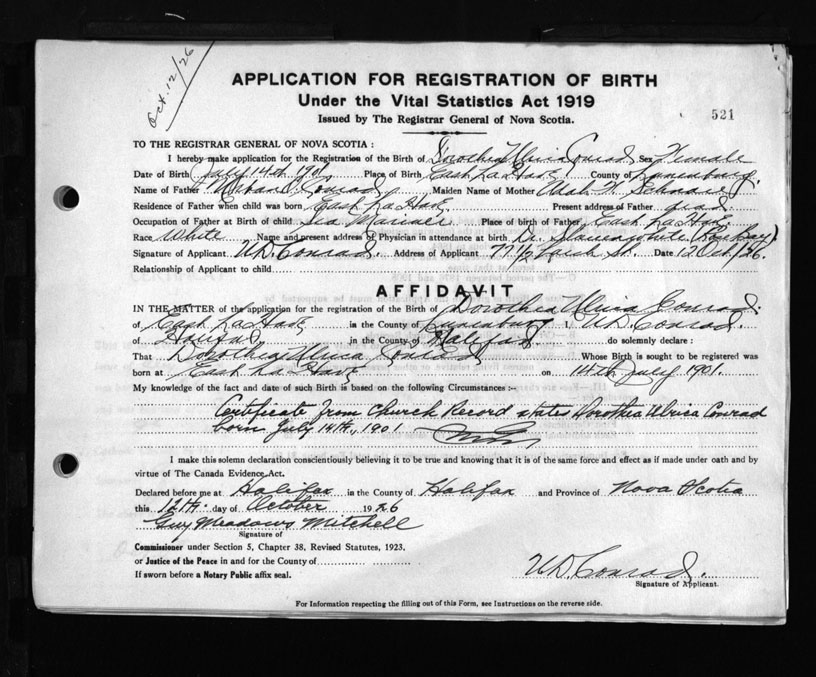 Oct. 12/26
APPLICATION FOR REGISTRATION OF BIRTH
Under the Vital Statistics Act 1919
521
Issued by The Registrar General of Nova Scotia.
TO THE REGISTRAR GENERAL OF NOVA SCOTIA:
I hereby make application for the Registration of the Birth of Dorothea Ulrica Conrad Sex Female
Date of Birth July 14th 1901 Place of Birth East La Have County of Lunenburg.
Name of Father Urban D. Conrad Maiden Name of Mother Adah
Residence of Father when child was born East La Have Present address of Father
Occupation of Father at Birth of child Sea Mariner Place of birth of Father East La Have
Race White Name and present address of Physician in attendance at birth Dr.
Signature of Applicant U.D. Conrad. Address of Applicant 77 1/2 St. Date 12 Oct/26.
Relationship of Applicant to child
AFFIDAVIT
IN THE MATTER of the application for the registration of the Birth of Dorothea Ulrica Conrad.
of East La Have in the County of Lunenburg I, U.D. Conrad.
of Halifax in the County of Halifax do solemnly declare:
That Dorothea Ulrica Conrad Whose Birth is sought to be registered was
born at East La Have on 14th July 1901.
My knowledge of the fact and date of such Birth is based on the following Circumstances:-
Certificate from Church Record states Dorothea Ulrica Conrad
born July 14th., 1901
I make this solemn declaration conscientiously believing it to be true and knowing that it is of the same force and effect as if made under oath and by
virtue of The Canada Evidence Act.
Declared before me at Halifax in the County of Halifax and Province of Nova Scotia
this 12th. day of October 1926
Guy Meadows Mitchell
Signature of
Commissioner under Section 5, Chapter 38, Revised Statutes, 1923.
or Justice of the Peace in and for the County of
If sworn before a Notary Public affix seal.
U.D. Conrad.
Signature of Applicant.
For Information respecting the filling out of this Form, see Instructions on the reverse side.